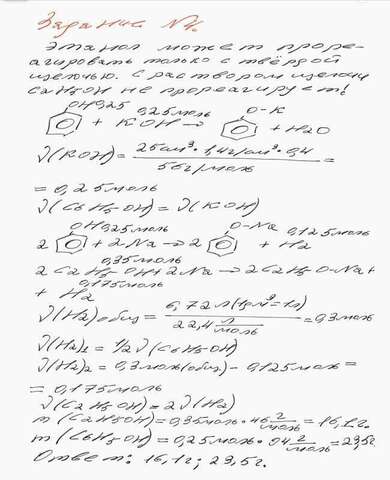 Задание №4.
Этанол может проре-
агировать только с твёрдой
щелочью. С раствором щелочи
C2H5OH не прореагирует!
OH 0,25 0,25моль O-K
+ KOH → + H2O
ν(KOH) = 25см³ · 1,4г/см³ · 0,4 / 56г/моль =
= 0,25моль
ν(C6H5-OH) = ν(KOH)
OH 0,25моль O-Na 0,125моль
2 + 2Na → 2 + H2
0,35моль
2C2H5OH + 2Na → 2C2H5O-Na +
+ H2 0,175моль
ν(H2)общ = 6,72л (1дм³=1л) / 22,4 л/моль = 0,3моль
ν(H2)1 = 1/2 ν(C6H5-OH)
ν(H2)2 = 0,3моль(общ) - 0,125моль =
= 0,175моль
ν(C2H5OH) = 2ν(H2)
m(C2H5OH) = 0,35моль · 46 г/моль = 16,1г.
m(C6H5OH) = 0,25моль · 94 г/моль = 23,5г.
Ответ: 16,1г; 23,5г.